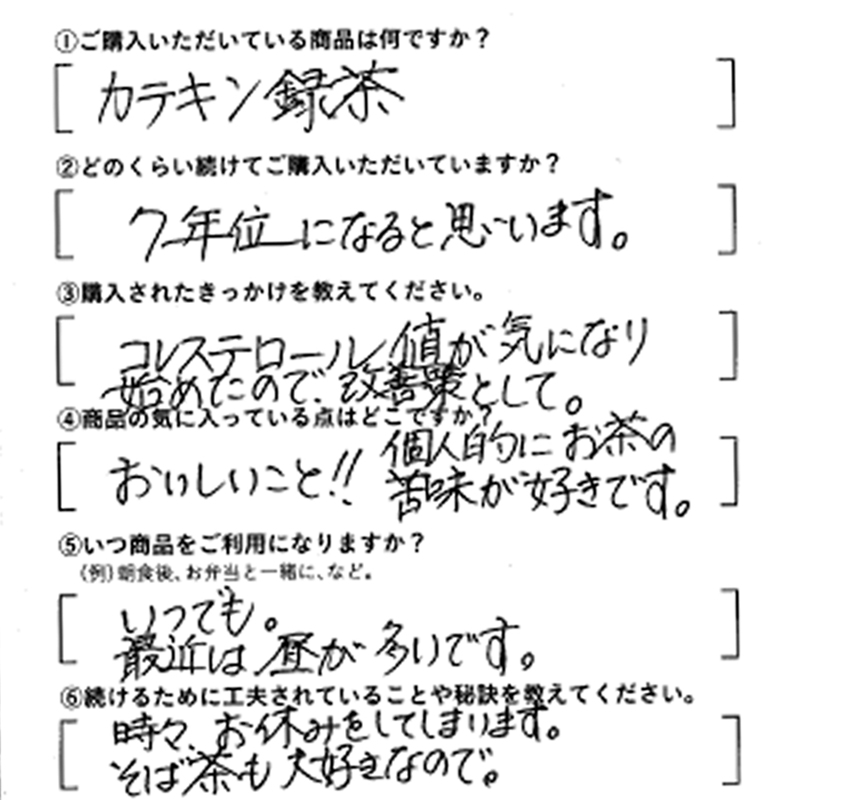 ①ご購入いただいている商品は何ですか？
カテキン緑茶
②どのくらい続けてご購入いただいていますか？
7年位になると思います。
③購入されたきっかけを教えてください。
コレステロール値が気になり
始めたので、改善策として。
④商品の気に入っている点はどこですか？
おいしいこと!! 個人的にお茶の
苦味が好きです。
⑤いつ商品をご利用になりますか？
(例)朝食後、お弁当と一緒に、など。
いつでも。
最近は昼が多いです。
⑥続けるために工夫されていることや秘訣を教えてください。
時々、お休みをしてしまいます。
そば茶も大好きなので。